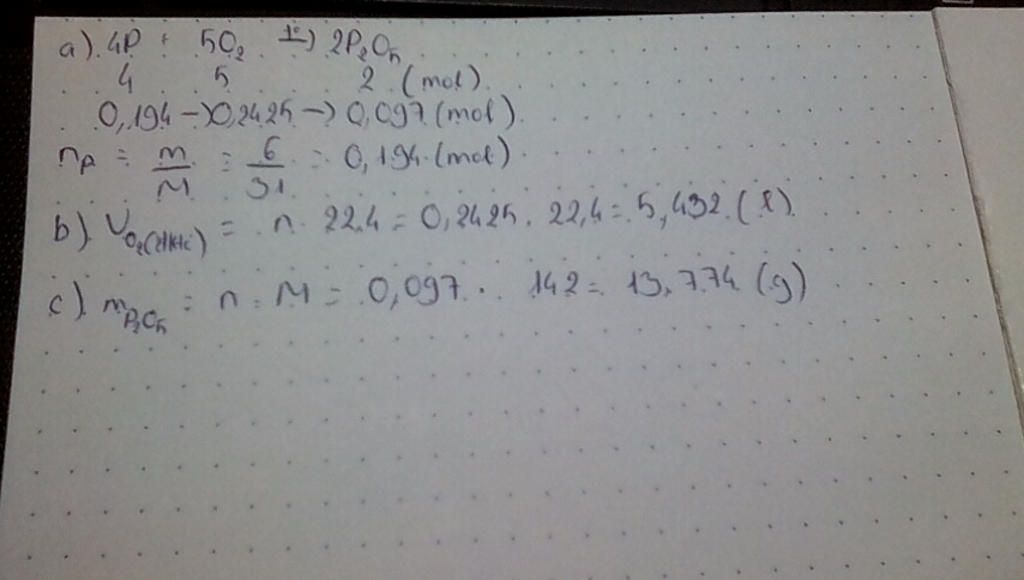 a). 4P + 5O₂ t°→ 2P₂O₅
4 5 2 (mol).
0,194 → 0,2425 → 0,097 (mol).
nP = m/M = 6/31 = 0,194 (mol)
b). VO₂(đktc) = n. 22.4 = 0,2425. 22,4 = 5,432 (l).
c). mP₂O₅ = n. M = 0,097. 142 = 13,774 (g)